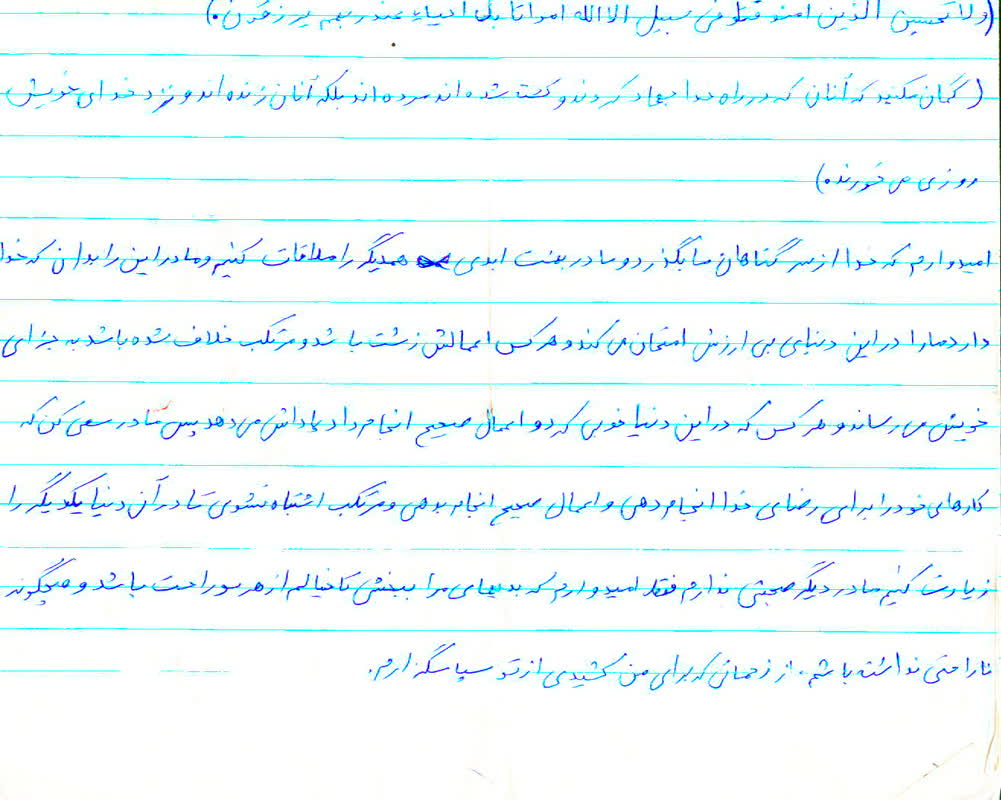 (ولا تحسبن الذین امنو قتلو فی سبیل الا الله امواتا بل احیاء عند ربهم یرزقون.)
( گمان مکنید که آنان که در راه خدا جهاد کردند و کشته شده اند مرده اند بلکه آنان زنده اند و نزد خدای خویش
روزی می خورند.)
امیدوارم که خدا از سر گناهان ما بگذرد و ما در بهشت ابدی همدیگر را ملاقات کنیم و مادر این را بدان که خدا
دارد ما را در این دنیای بی ارزش امتحان می کند و هر کس اعمالش زشت باشد و مرتکب خلاف شده باشد به جزای
خویش می رساند و هر کس که در این دنیا خوبی کرد و اعمال صحیح انجام داد پاداش می دهد پس مادر سعی کن که
کارهای خود را برای رضای خدا انجام دهی و اعمال صحیح انجام بدهی و مرتکب اشتباه نشوی تا در آن دنیا یکدیگر را
زیارت کنیم مادر دیگر صحبتی ندارم فقط امیدوارم که بدیهای مرا ببخشی تا خیالم از هر سو راحت باشد و هیچگونه
ناراحتی نداشته باشم. از زحماتی که برای من کشیدی از تو سپاسگزارم.